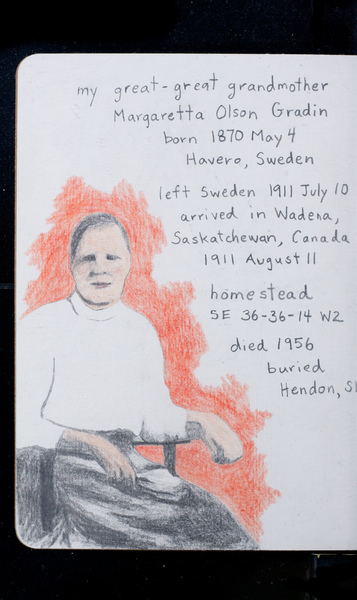 my great-great grandmother
Margaretta Olson Gradin
born 1870 May 4
Havero, Sweden
left Sweden 1911 July 10
arrived in Wadena,
Saskatchewan, Canada
1911 August 11
homestead
SE 36-36-14 W2
died 1956
buried
Hendon,